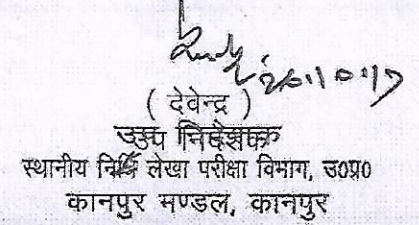 26.10.17
( देवेन्द्र )
उप निदेशक
स्थानीय निधि लेखा परीक्षा विभाग, उ०प्र०
कानपुर मण्डल, कानपुर